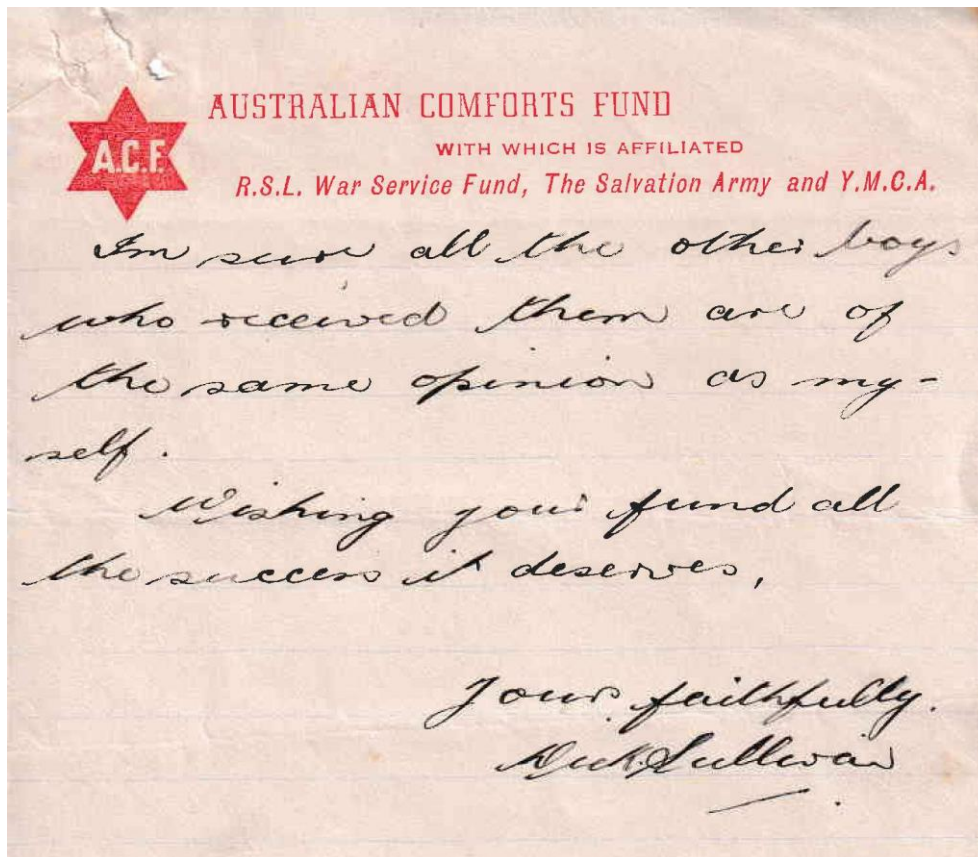 AUSTRALIAN COMFORTS FUND
A.C.F.
WITH WHICH IS AFFILIATED
R.S.L. War Service Fund, The Salvation Army and Y.M.C.A.
Im sure all the other boys
who received them are of
the same opinion as my-
self.
Wishing your fund all
the success it deserves,
Yours faithfully.
Dick Sullivan